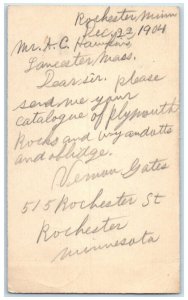 Rochester, Minn
Dec, 22, 1904
Mr. A. C. Hawkins
Lancaster Mass.
Dear sir. please
send me your
catalogue of Plymouth
Rocks and wyandotts
and oblidge.
Vernon Gates
515 Rochester St
Rochester
Minnesota